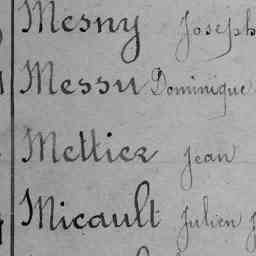 Mesny Joseph
Messu Dominique
Mettier Jean
Micault Julien